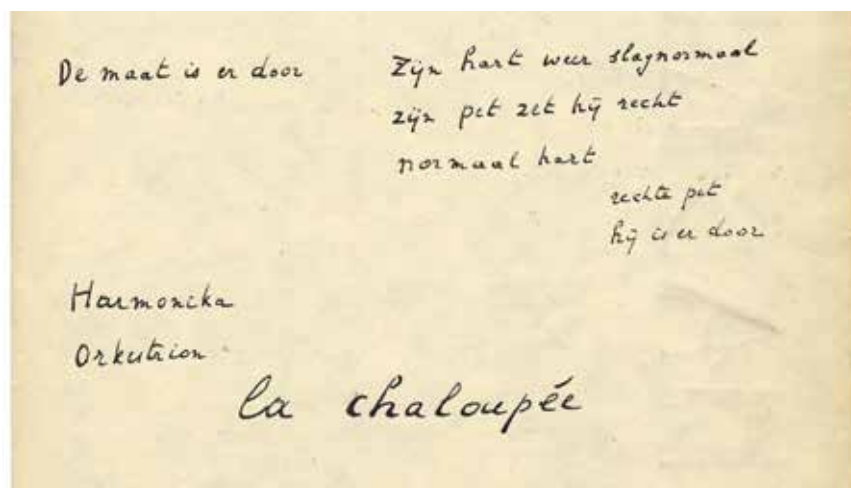 De maat is er door
Zijn hart weer slagnormaal
zijn pet zet hij recht
normaal hart
rechte pet
hij is er door
Harmonika
Orkestrion
la chaloupée